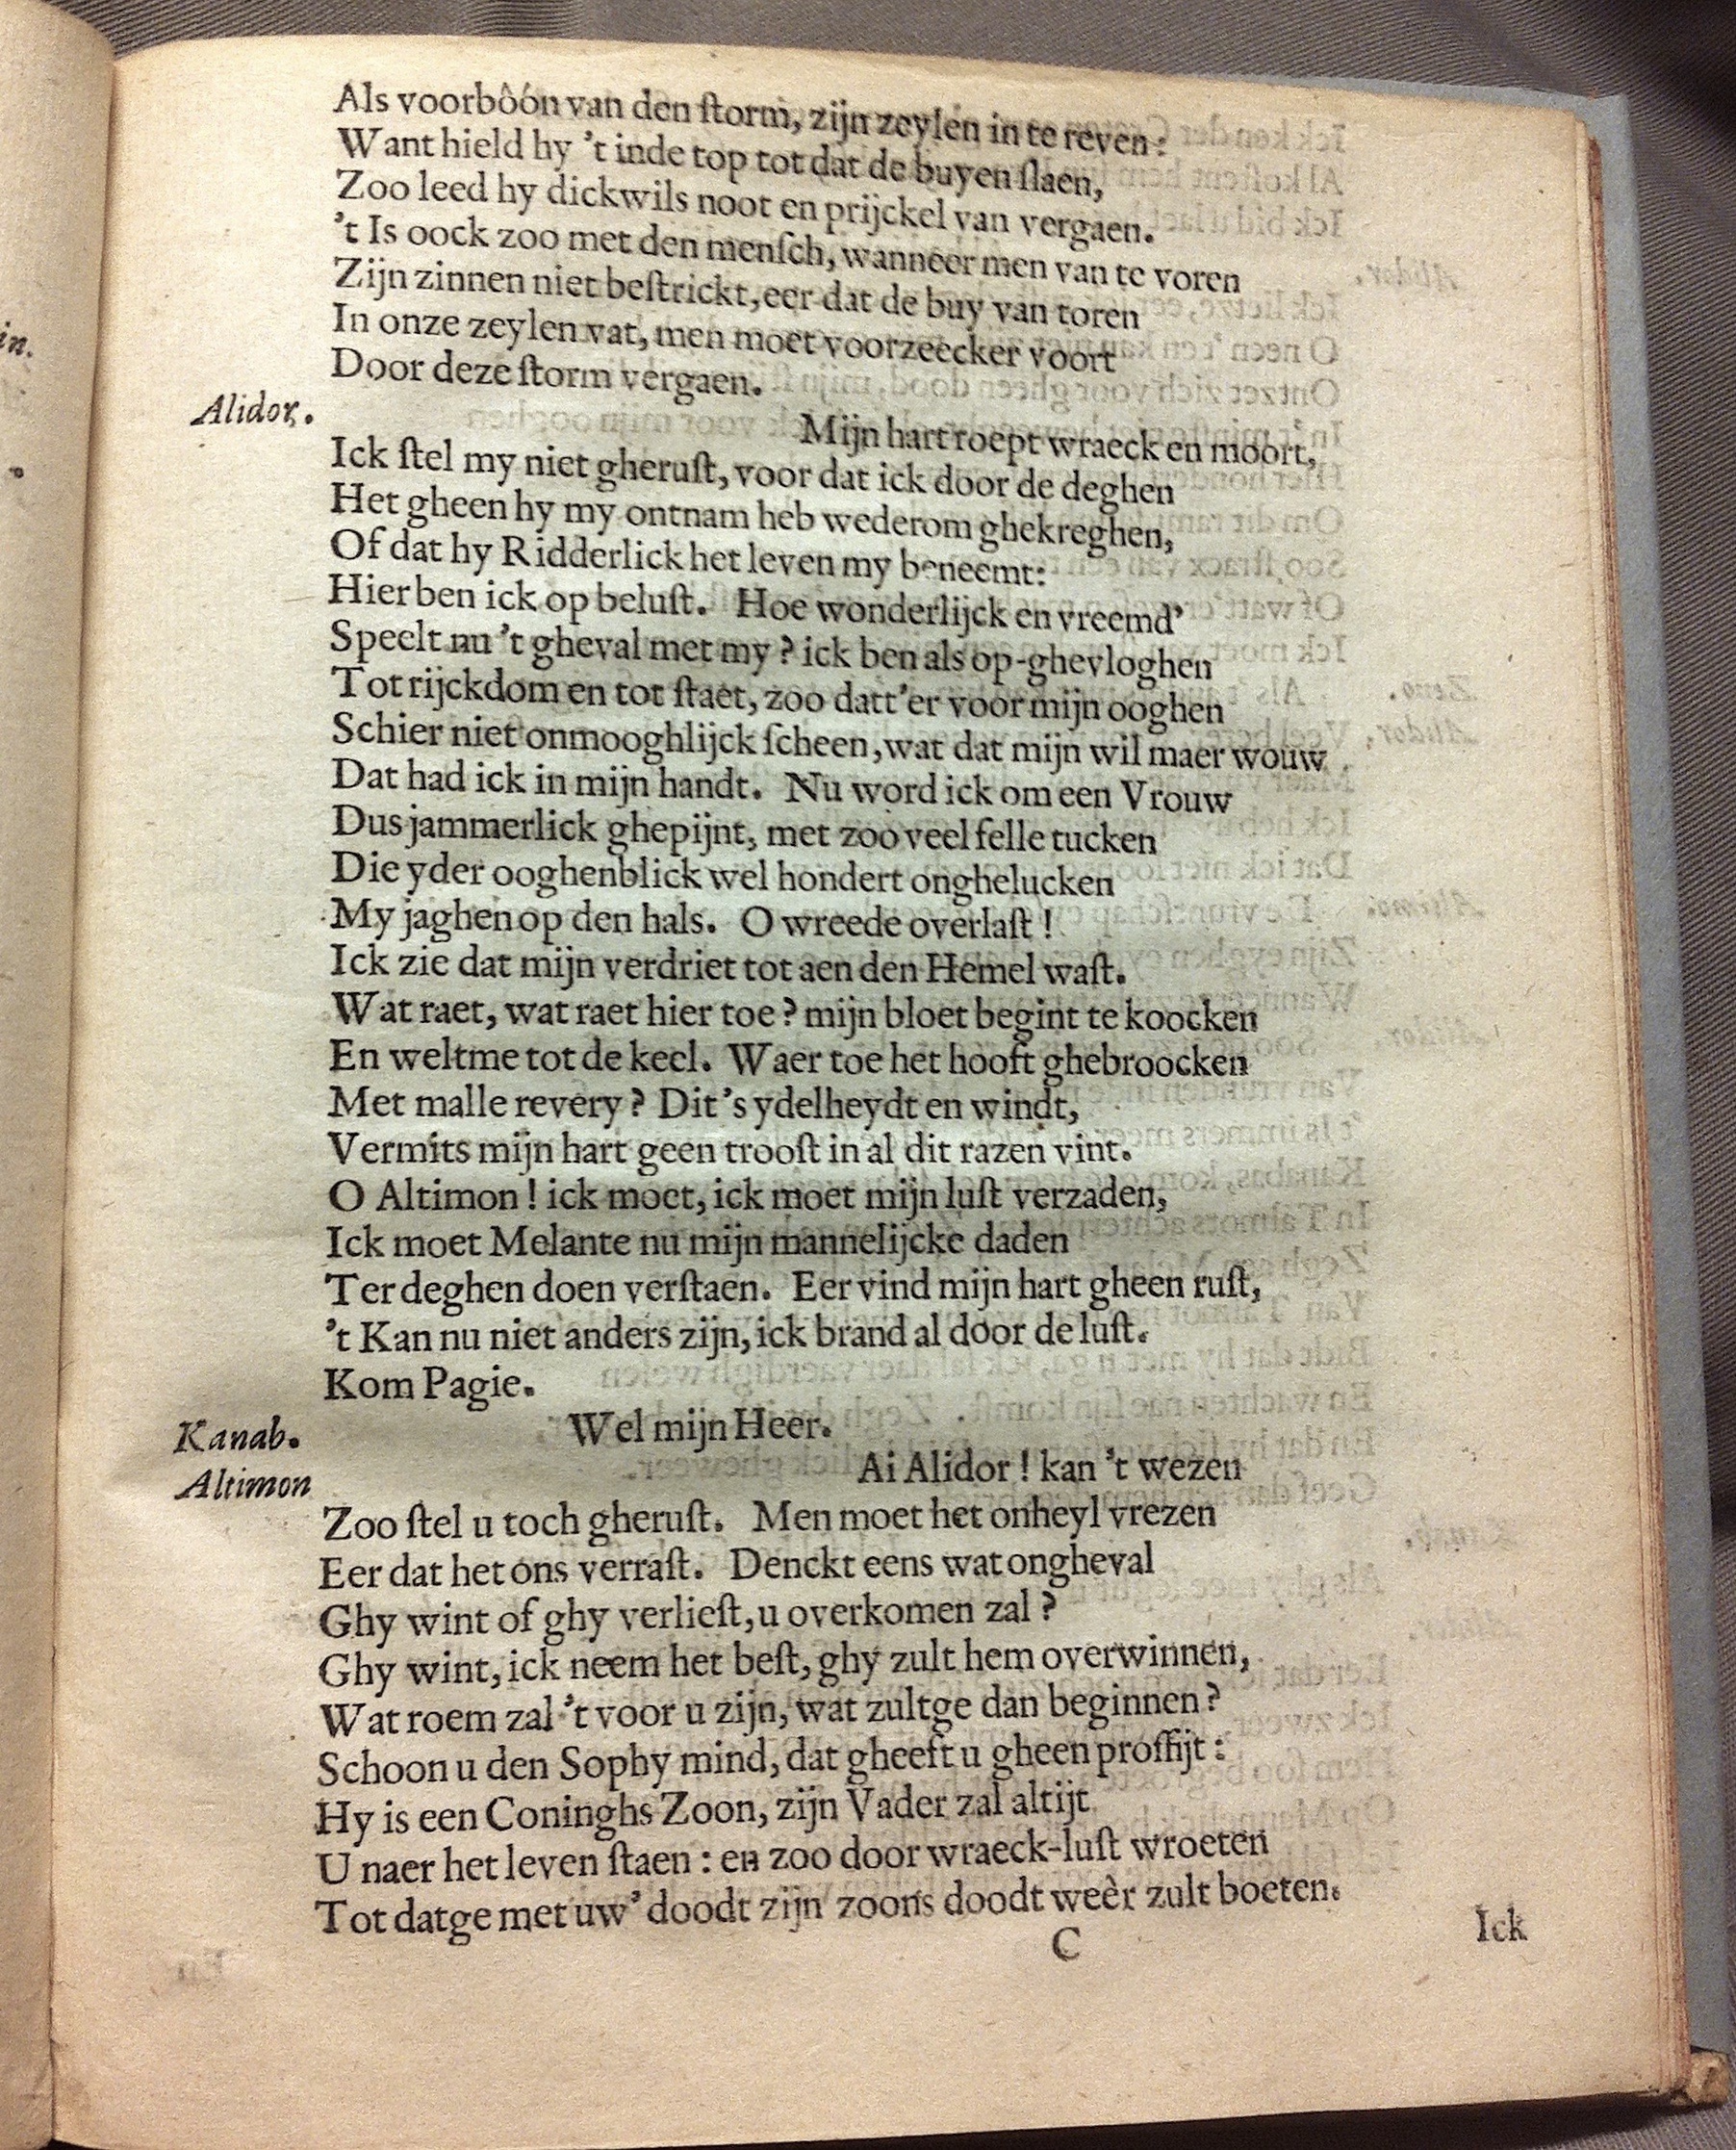 Als voorbôón van den ſtorm, zijn zeylen in te reven:
Want hield hy 't inde top tot dat de buyen ſlaen,
Zoo leed hy dickwils noot en prijckel van vergaen.
't Is oock zoo met den menſch, wanneer men van te voren
Zijn zinnen niet beſtrickt, eer dat de buy van toren
In onze zeylen vat, men moet voorzeecker voort
Door deze ſtorm vergaen.
Alidor. Mijn hart roept wraeck en moort,
Ick ſtel my niet gheruſt, voor dat ick door de deghen
Het gheen hy my ontnam heb wederom ghekreghen,
Of dat hy Ridderlick het leven my beneemt:
Hier ben ick op beluſt. Hoe wonderlijck en vreemd'
Speelt nu 't gheval met my? ick ben als op-ghevloghen
Tot rijckdom en tot ſtaet, zoo datt'er voor mijn ooghen
Schier niet onmooghlijck ſcheen, wat dat mijn wil maer wouw
Dat had ick in mijn handt. Nu word ick om een Vrouw
Dus jammerlick ghepijnt, met zoo veel felle tucken
Die yder ooghenblick wel hondert onghelucken
My jaghen op den hals. O wreede overlaſt!
Ick zie dat mijn verdriet tot aen den Hemel waſt.
Wat raet, wat raet hier toe? mijn bloet begint te koocken
En weltme tot de keel. Waer toe het hooft ghebroocken
Met malle revery? Dit's ydelheydt en windt,
Vermits mijn hart geen trooſt in al dit razen vint.
O Altimon! ick moet, ick moet mijn luſt verzaden,
Ick moet Melante nu mijn mannelijcke daden
Ter deghen doen verſtaen. Eer vind mijn hart gheen ruſt,
't Kan nu niet anders zijn, ick brand al door de luſt.
Kom Pagie.
Kanab. Wel mijn Heer.
Altimon Ai Alidor! kan 't wezen
Zoo ſtel u toch gheruſt. Men moet het onheyl vrezen
Eer dat het ons verraſt. Denckt eens wat ongheval
Ghy wint of ghy verlieſt, u overkomen zal?
Ghy wint, ick neem het beſt, ghy zult hem overwinnen,
Wat roem zal 't voor u zijn, wat zultge dan beginnen?
Schoon u den Sophy mind, dat gheeft u gheen proffijt:
Hy is een Coninghs Zoon, zijn Vader zal altijt
U naer het leven ſtaen: en zoo door wraeck-luſt wroeten
Tot datge met uw' doodt zijn zoons doodt weêr zult boeten.
C Ick